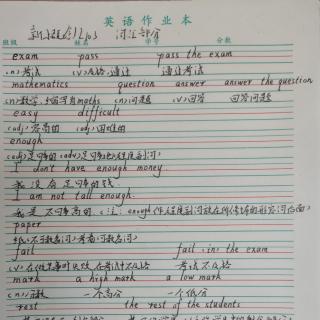 英语作业本
班级 姓名 学号 分数
词汇部分
exam pass pass the exam
(n.)考试 (v.)及格,通过 通过考试
mathematics question answer answer the question
(n.)数学,缩写为maths (n.)问题 (v.)回答 回答问题
easy difficult
(adj.)容易的 (adj.)困难的
enough
(adj.)足够的 (adv.)足够地
I don't have enough money.
我没有足够的钱.
I am not tall enough.
我是不够高的. (注: enough作程度副词放在所修饰的形容词后面)
paper
纸(不可数名词)/考卷(可数名词)
fail fail (in) the exam
(v.)在做某事时失败,在考试中不及格 考试不及格
mark a high mark a low mark
(n.)分数 一个高分 一个低分
rest the rest of the students